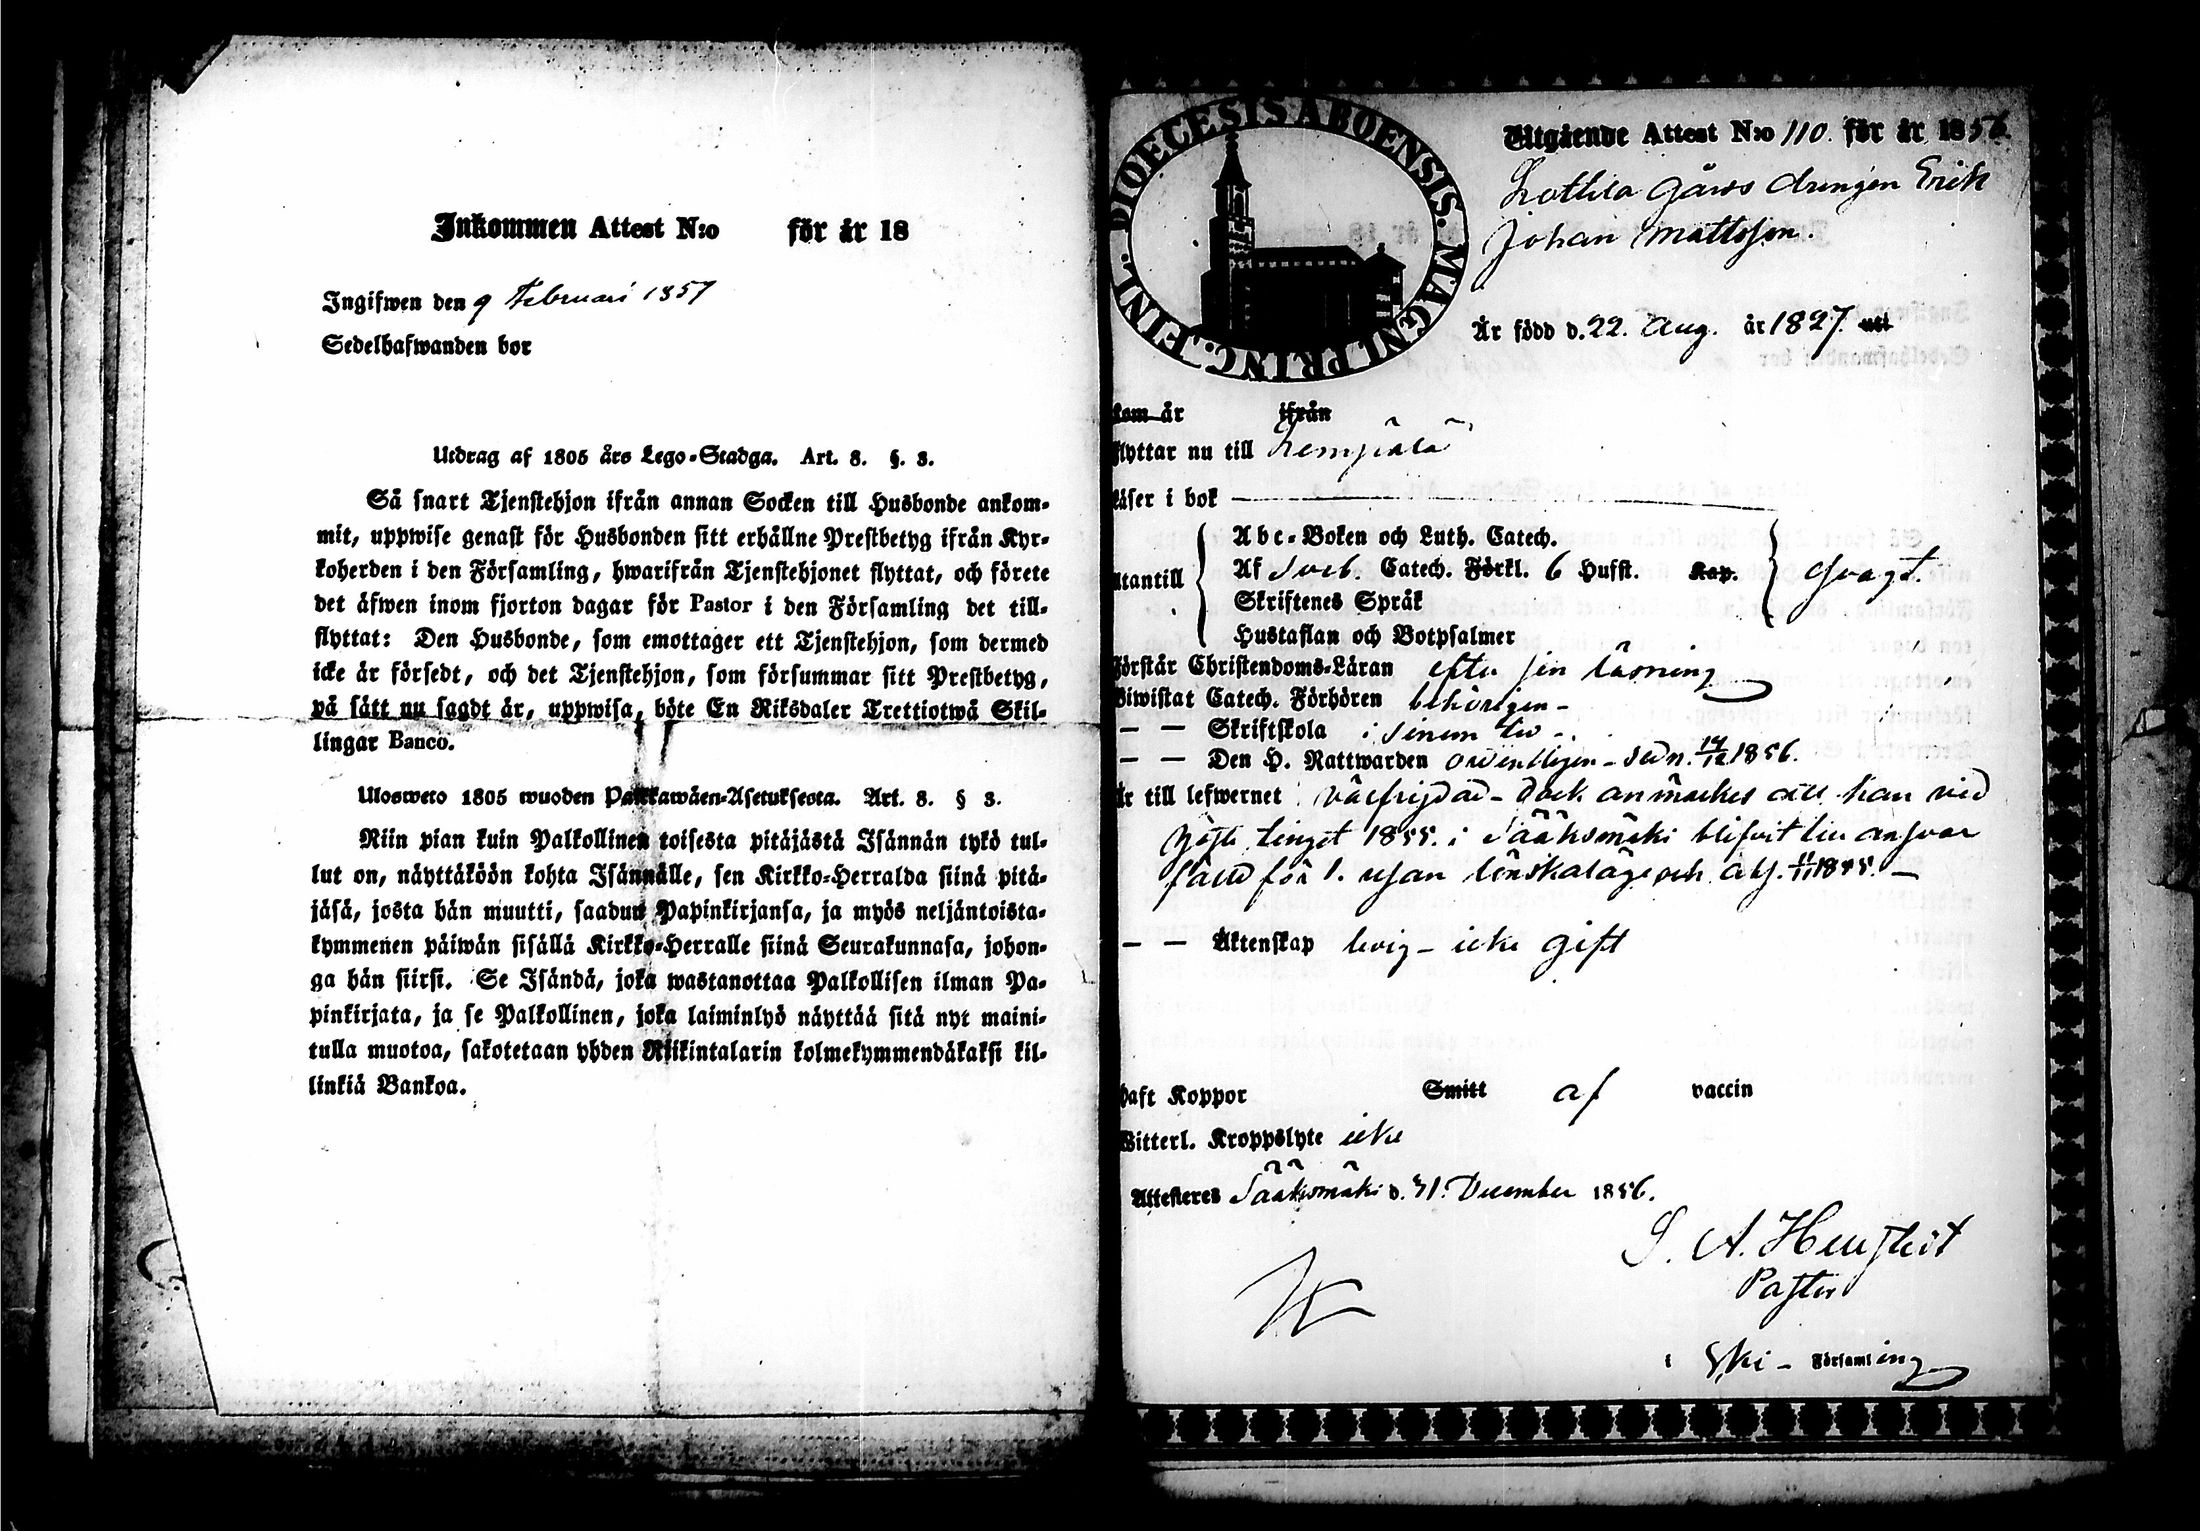 Inkommen Attest N:o för år 18
Ingifwen den 9 Februari 1857
Sedelhafwanden bor
Utdrag af 1805 års Lego-Stadga. Art. 8. §. 3.
Så snart Tjenstehjon ifrån annan Socken till Husbonde ankom-
mit, uppwise genast för Husbonden sitt erhållne Prestbetyg ifrån Kyr-
koherden i den Församling, hwarifrån Tjenstehjonet flyttat, och förete
det äfwen inom fjorton dagar för Pastor i den Församling det till-
flyttat: Den Husbonde, som emottager ett Tjenstehjon, som dermed
icke är försedt, och det Tjenstehjon, som försummar sitt Prestbetyg,
på sätt nu sagdt är, uppwisa, böte En Riksdaler Trettiotwå Skil-
lingar Banco.
Ulosweto 1805 wuoden Palkkawäen-Asetuksesta. Art. 8. § 3.
Niin pian kuin Palkollinen toisesta pitäjästä Isännän tykö tul-
lut on, näyttäköön kohta Isännälle, sen Kirkko-Herralda siinä pitä-
jäsä, josta hän muutti, saadun Papinkirjansa, ja myös neljäntoista-
kymmenen päiwän sisällä Kirkko-Herralle siinä Seurakunnasa, johon-
ga hän siirsi. Se Isändä, joka wastanottaa Palkollisen ilman Pa-
pinkirjata, ja se Palkollinen, joka laiminlyö näyttää sitä nyt maini-
tulla muotoa, sakotetaan yhden Riikintalarin kolmekymmendäkaksi kil-
linkiä Bankoa.
DIOECESIS ABOENSIS. MAGNI PRINC. FINL.
Utgående Attest N:o 110. för år 1856.
gårds drengen Erik
Johan Mattsson.
Är född d. 22. Aug. år 1827. uti
kom år ifrån
flyttar nu till Lempälä
läser i bok
utantill
Abc-Boken och Luth. Catech.
Af Sveb. Catech. Förkl. 6 Hufst. Kap.
Skriftenes Språk
Hustaflan och Botpsalmer
svagt.
Förstår Christendoms-Läran efter sin läsning
Biwistat Catech. Förhören behörigen -
— — Skriftskola i sinom tid -
— — Den H. Nattwarden ordentligen - sedn. 14/12 1856.
Är till lefwernet välfrejdad - dock anmärkes att han vid
tinget 1855. i Sääksmäki blifvit till ansvar
fäld för 1. resan och abs. 11/11 1855. -
— — Äktenskap ledig - icke gift
haft Koppor Smitt af vaccin
Witterl. Kroppslyte icke
Attesteras Sääksmäki d. 31. December 1856.
Pastor
i Ski - Församling